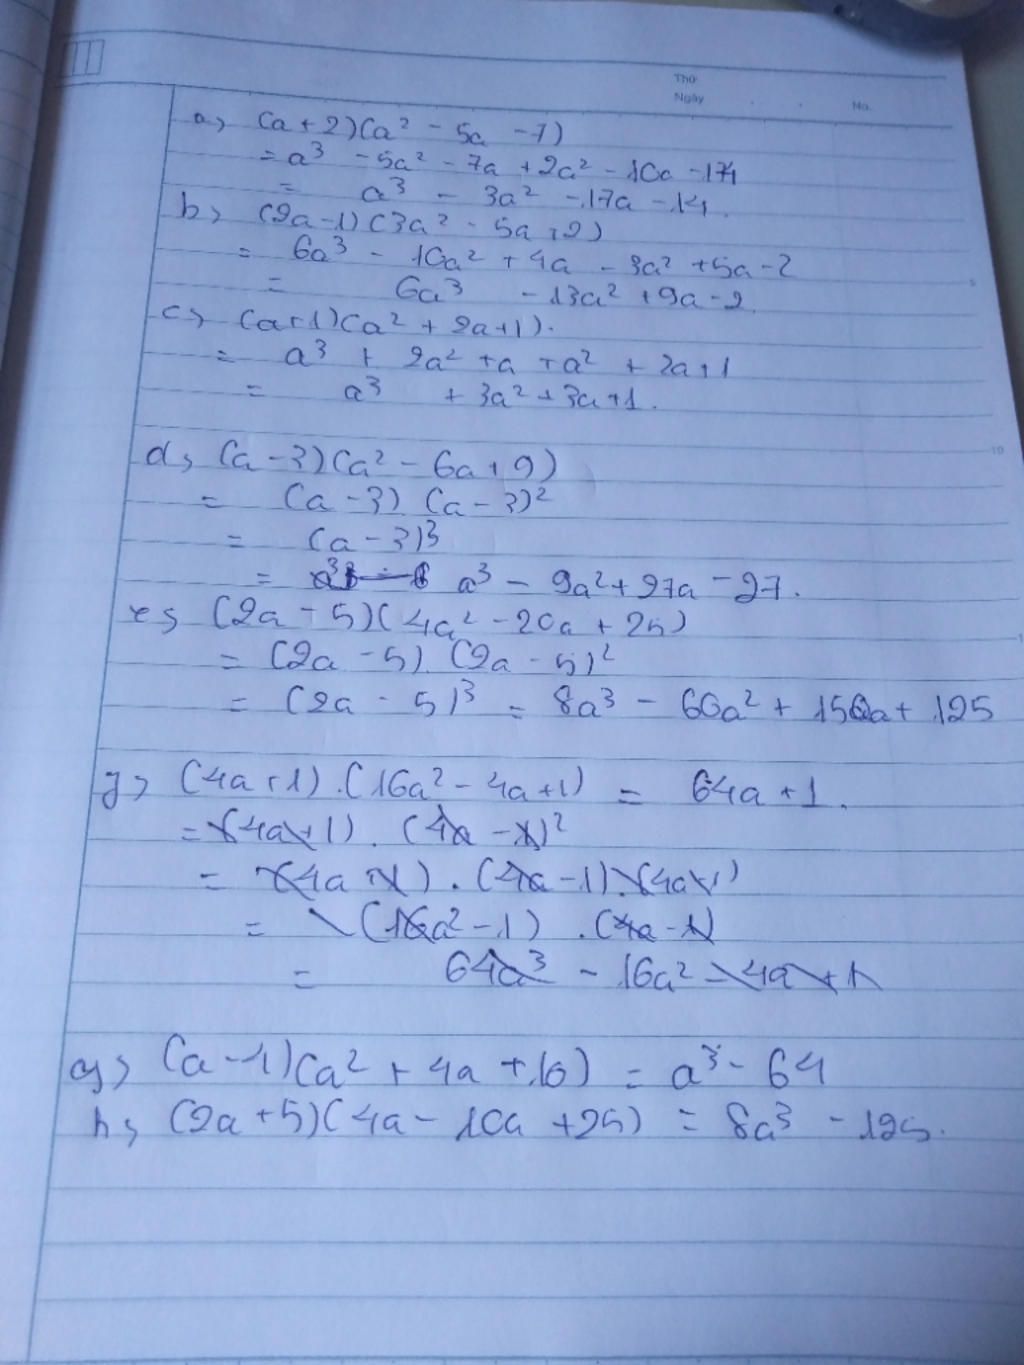 Thứ
Ngày . . No.
a, (a+2)(a² - 5a - 7)
= a³ - 5a² - 7a + 2a² - 10a - 14
= a³ - 3a² - 17a - 14.
b, (2a-1)(3a² - 5a + 2)
= 6a³ - 10a² + 4a - 3a² + 5a - 2
= 6a³ - 13a² + 9a - 2
c, (a+1)(a² + 2a+1).
= a³ + 2a² + a + a² + 2a + 1
= a³ + 3a² + 3a + 1.
d, (a-3)(a² - 6a + 9)
= (a-3) (a-3)²
= (a-3)³
= a³ - 9a² + 27a - 27.
e, (2a - 5)(4a² - 20a + 25)
= (2a - 5) (2a - 5)²
= (2a - 5)³ = 8a³ - 60a² + 150a + 125
10
g, (4a+1).(16a² - 4a+1) = 64a + 1.
= (4a+1). (4a - 1)²
= (4a + 1). (4a-1).(4a-1)
= (16a² - 1) . (4a - 1)
= 64a³ - 16a² - 4a + 1
g, (a-4)(a² + 4a + 16) = a³ - 64
h, (2a+5)(4a - 10a + 25) = 8a³ - 125.